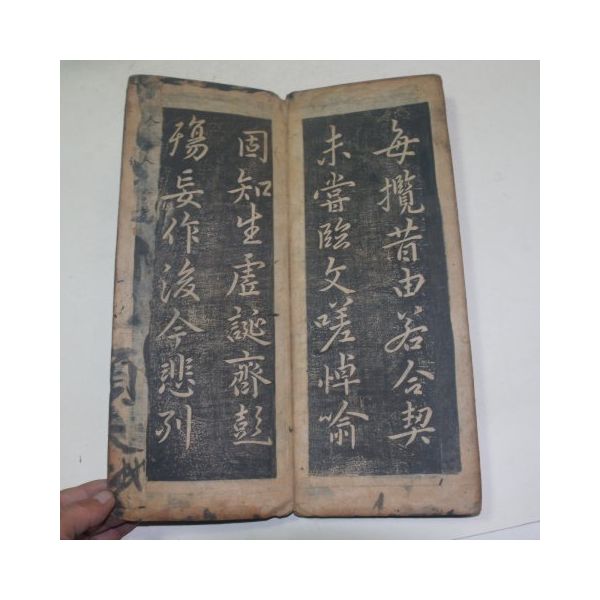 每攬昔由若合契
未嘗臨文嗟悼喻
固知生虛誕齊彭
殤妄作後今悲列